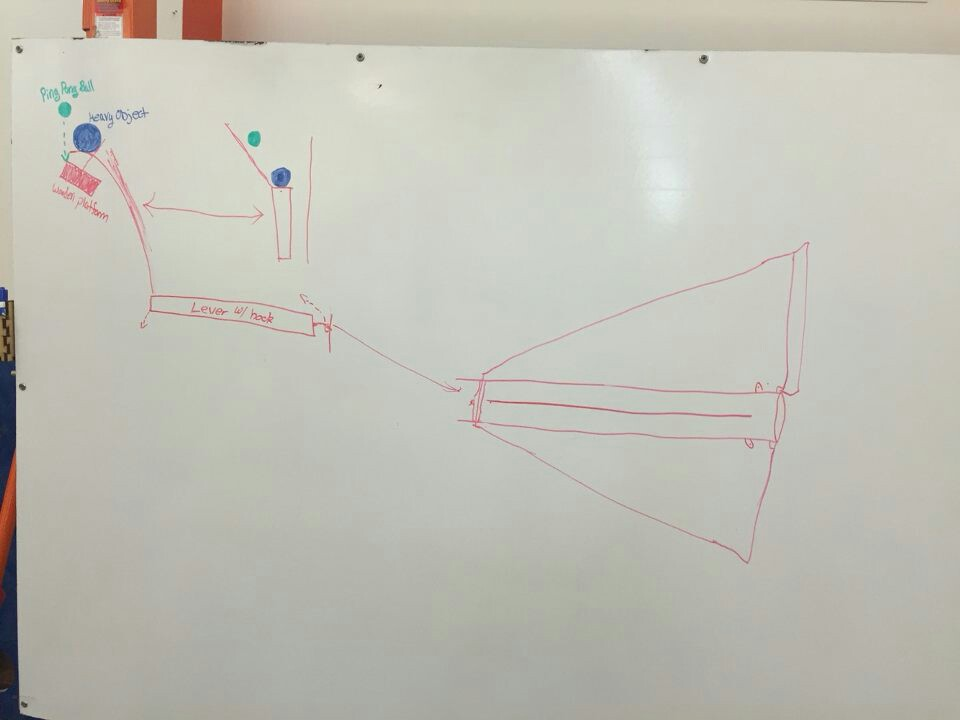 Ping Pong Ball
Heavy Object
Wooden platform
Lever w/ hook